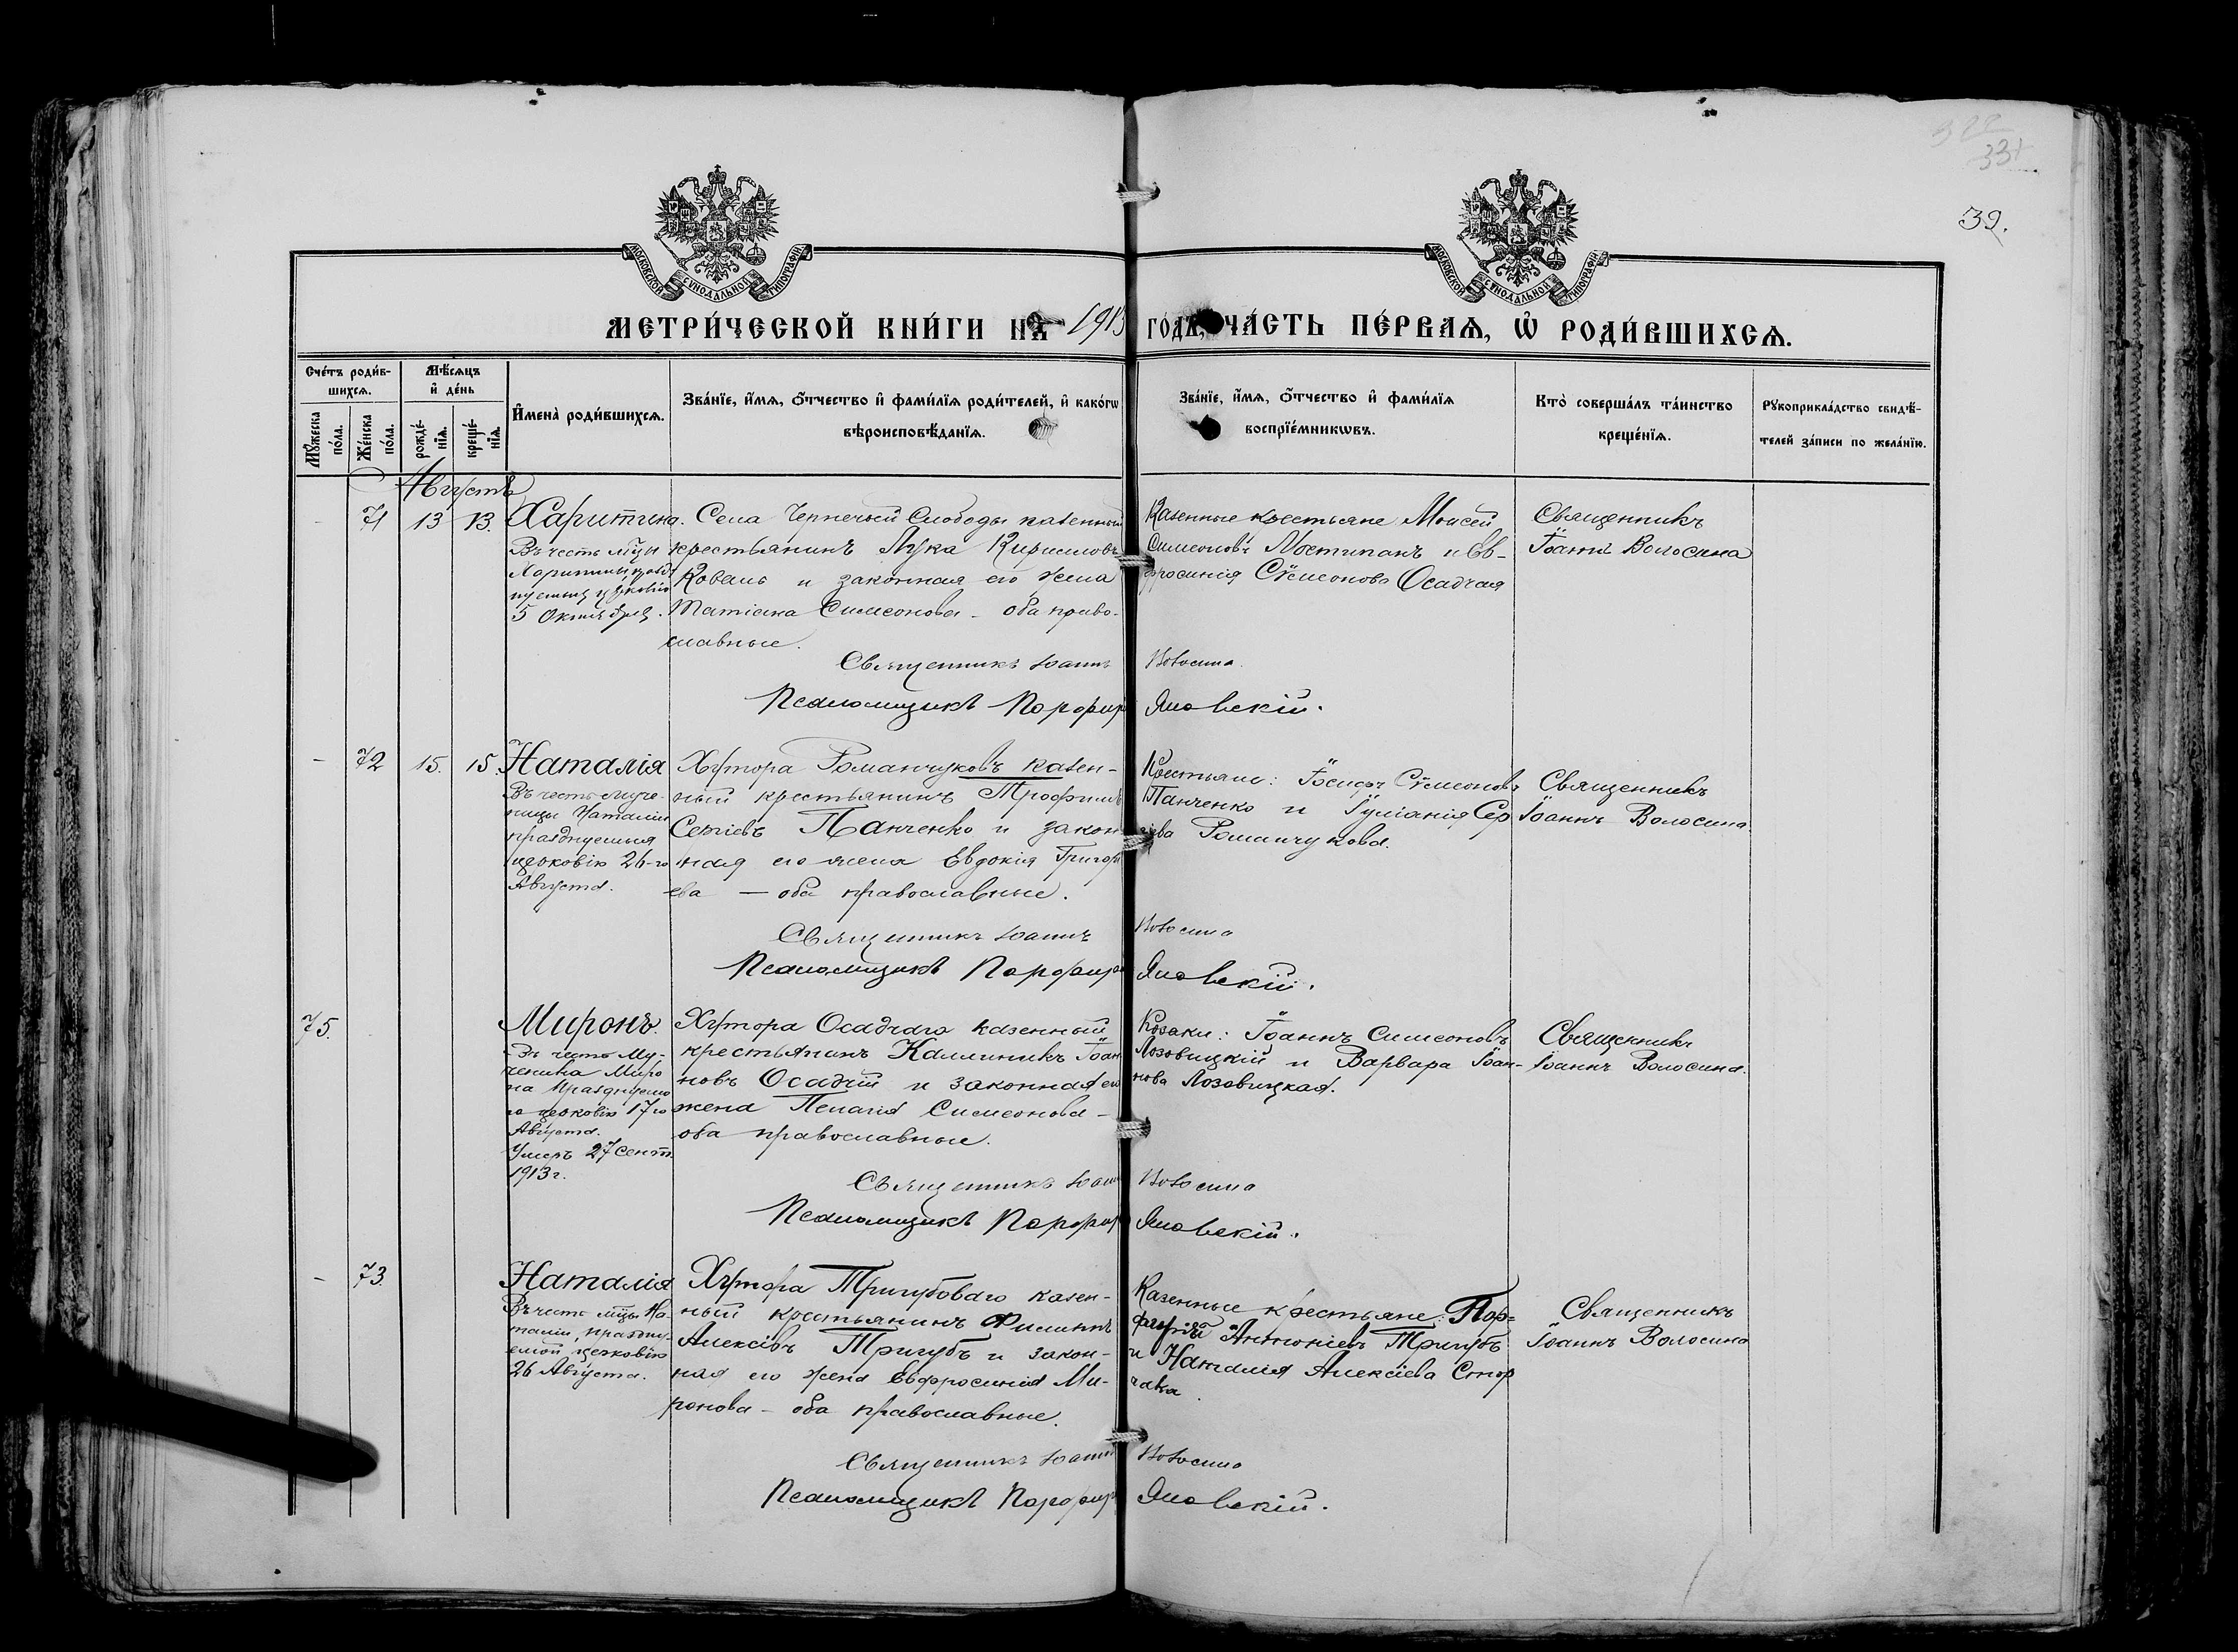 322
331
39.
МОСКОВСКОЙ СѴНОДАЛЬНОЙ ТИПОГРАФІИ
МОСКОВСКОЙ СѴНОДАЛЬНОЙ ТИПОГРАФІИ
МЕТРИ́ЧЕСКОЙ КНИ́ГИ НА 1913 ГО́ДЪ, ЧА́СТЬ ПЕ́РВАѦ, Ѡ҆ РОДИ́ВШИХСѦ.
Сче́тъ роди́в-
шихсѧ.
Мꙋ́жеска по́ла.
Же́нска по́ла.
Мѣ́сѧцъ
и҆ де́нь
рожде́-нїѧ.
креще́-нїѧ.
И҆мена̀ роди́вшихсѧ.
Зва́нїе, и҆́мѧ, ѻ҆́тчество и҆ фами́лїѧ роди́телей, и҆ како́гѡ
вѣроисповѣ́данїѧ.
Зва́нїе, и҆́мѧ, ѻ҆́тчество и҆ фами́лїѧ
воспрїе́мникѡвъ.
Кто̀ соверша́лъ та́инство
креще́нїѧ.
Рꙋкоприкла́дство свидѣ́-
телей за́писи по жела́нїю.
Августъ
- 71 13 13.
Харитина.
Въ честь мцы
Харитины празд
нуемыя церковію
5 Октября.
Села Чернечьей Слободы казенный
крестьянинъ Лука Кирилловъ
Коваль и законная его жена
Татіана Симеонова - оба право-
славные.
Казенные крестьяне Моисей
Симеоновъ Мостипанъ и Ев-
фросинія Сѵмеонова Осадчая
Священникъ
Іоаннъ Волосина
Священникъ Іоаннъ Волосина.
Псаломщикъ Порфирій Яновскій.
- 72 15. 15.
Наталія
Въ честь муче-
ницы Наталіи
празднуемыя
церковію 26-го
Августа.
Хутора Романчуковъ казен-
ный крестьянинъ Трофимъ
Сергіевъ Панченко и закон
ная его жена Евдокія Григорі
ева — оба православные.
Крестьяне: Іосифъ Сѵмеоновъ
Панченко и Іуліанія Сер
гіева Романчукова.
Священникъ
Іоаннъ Волосина.
Священникъ Іоаннъ Волосина
Псаломщикъ Порфирій Яновскій.
75.
Миронъ.
Въ честь Му-
ченика Миро
на празднуемо
го церковію 17го
Августа.
Умеръ 27 Сент.
1913 г.
Хутора Осадчаго казенный
крестьянинъ Каллиникъ Іоан
новъ Осадчій и законная его
жена Пелагія Симеонова -
оба православные.
Козаки: Іоаннъ Симеоновъ
Лозовицкій и Варвара Іоан-
нова Лозовицкая.
Священникъ
Іоаннъ Волосина.
Священникъ Іоаннъ Волосина
Псаломщикъ Порфирій Яновскій.
- 73.
Наталія
Въ честь мцы На
таліи, праздну-
емой церковію
26 Августа.
Хутора Тригубоваго казен-
ный крестьянинъ Филиппъ
Алексіевъ Тригубъ и закон-
ная его жена Евфросинія Ми-
ронова - оба православные.
Казенные крестьяне: Пор=
фирій Антоніевъ Тригубъ
и Наталія Алексіева Стор
чака.
Священникъ
Іоаннъ Волосина
Священникъ Іоаннъ Волосина
Псаломщикъ Порфирій Яновскій.